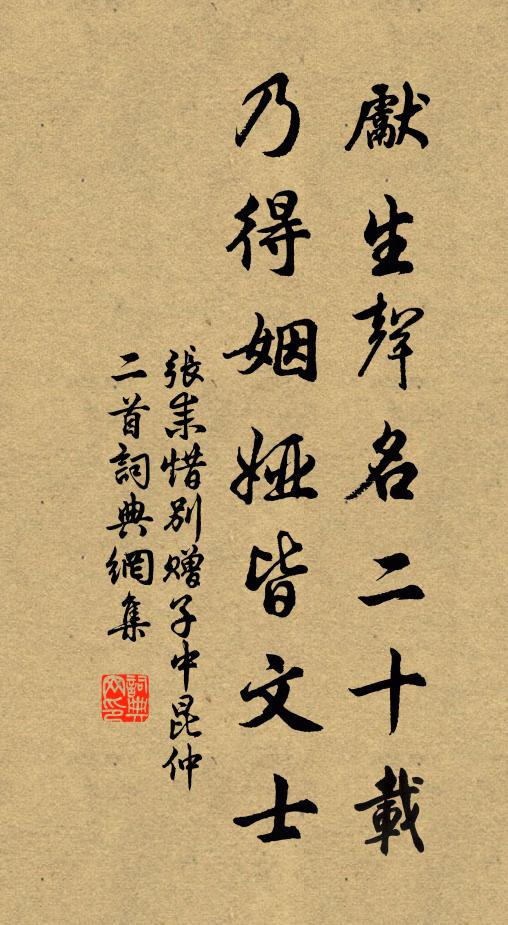 獻生聲名二十載
乃得姻婭皆文士
張耒惜別贈子中昆仲
二首詞典網集
詞典
网印